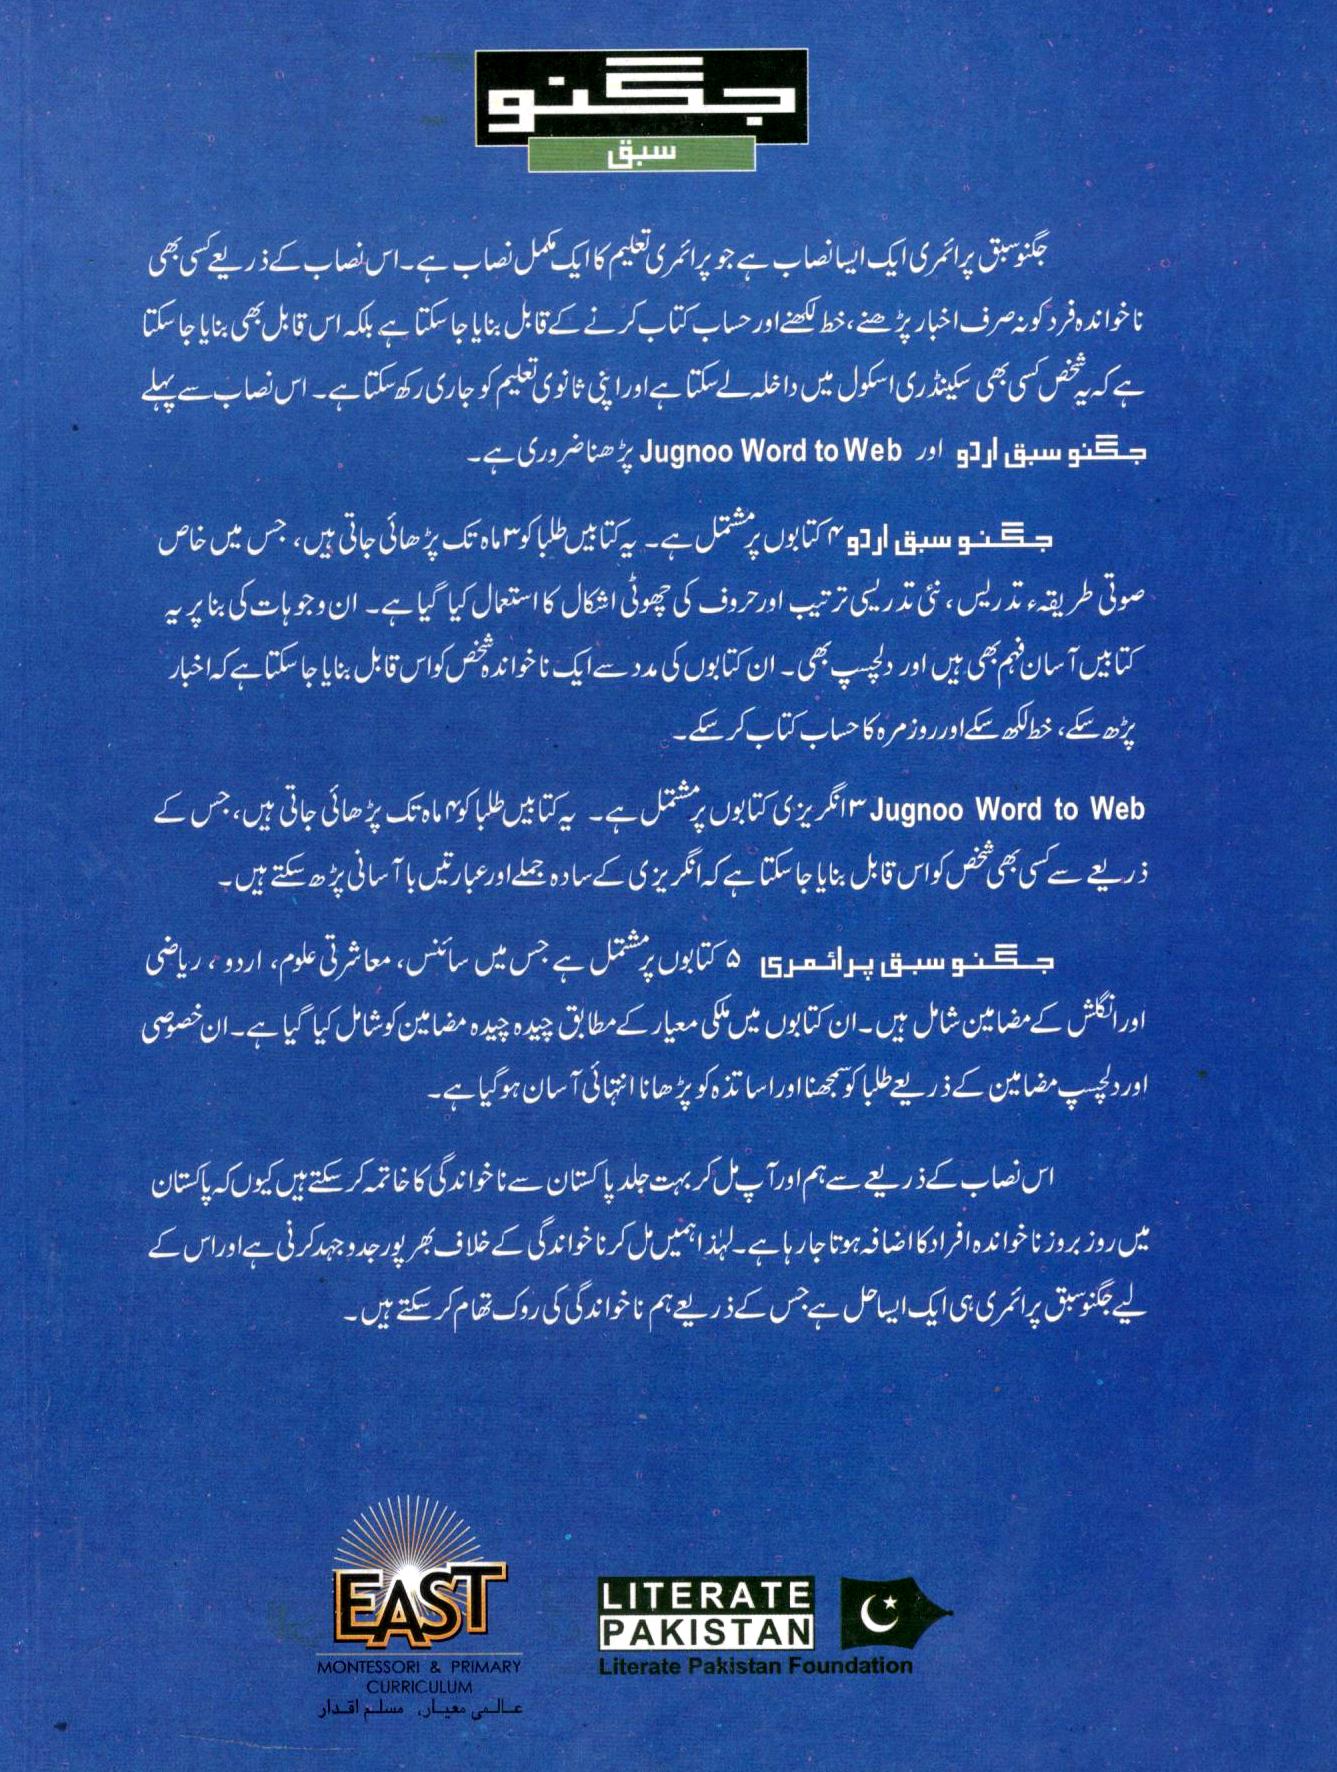 جگنو
سبق
جگنو سبق پرائمری ایک ایسا نصاب ہے جو پرائمری تعلیم کا ایک مکمل نصاب ہے۔ اس نصاب کے ذریعے کسی بھی
ناخواندہ فرد کو نہ صرف اخبار پڑھنے، خط لکھنے اور حساب کتاب کرنے کے قابل بنایا جا سکتا ہے بلکہ اس قابل بھی بنایا جا سکتا
ہے کہ یہ شخص کسی بھی سکینڈری اسکول میں داخلہ لے سکتا ہے اور اپنی ثانوی تعلیم کو جاری رکھ سکتا ہے۔ اس نصاب سے پہلے
جگنو سبق اردو اور Jugnoo Word to Web پڑھنا ضروری ہے۔
جگنو سبق اردو ۴ کتابوں پر مشتمل ہے۔ یہ کتابیں طلبا کو ۳ ماہ تک پڑھائی جاتی ہیں، جس میں خاص
صوتی طریقہء تدریس، نئی تدریسی ترتیب اور حروف کی چھوٹی اشکال کا استعمال کیا گیا ہے۔ ان وجوہات کی بنا پر یہ
کتابیں آسان فہم بھی ہیں اور دلچسپ بھی۔ ان کتابوں کی مدد سے ایک ناخواندہ شخص کو اس قابل بنایا جا سکتا ہے کہ اخبار
پڑھ سکے، خط لکھ سکے اور روزمرہ کا حساب کتاب کر سکے۔
Jugnoo Word to Web ۳ انگریزی کتابوں پر مشتمل ہے۔ یہ کتابیں طلبا کو ۴ ماہ تک پڑھائی جاتی ہیں، جس کے
ذریعے سے کسی بھی شخص کو اس قابل بنایا جا سکتا ہے کہ انگریزی کے سادہ جملے اور عبارتیں با آسانی پڑھ سکتے ہیں۔
جگنو سبق پرائمری ۵ کتابوں پر مشتمل ہے جس میں سائنس، معاشرتی علوم، اردو، ریاضی
اور انگلش کے مضامین شامل ہیں۔ ان کتابوں میں ملکی معیار کے مطابق چیدہ چیدہ مضامین کو شامل کیا گیا ہے۔ ان خصوصی
اور دلچسپ مضامین کے ذریعے طلبا کو سمجھنا اور اساتذہ کو پڑھانا انتہائی آسان ہو گیا ہے۔
اس نصاب کے ذریعے سے ہم اور آپ مل کر بہت جلد پاکستان سے ناخواندگی کا خاتمہ کر سکتے ہیں کیوں کہ پاکستان
میں روز بروز ناخواندہ افراد کا اضافہ ہوتا جا رہا ہے۔ لہٰذا ہمیں مل کر ناخواندگی کے خلاف بھرپور جدوجہد کرنی ہے اور اس کے
لیے جگنو سبق پرائمری ہی ایک ایسا حل ہے جس کے ذریعے ہم ناخواندگی کی روک تھام کر سکتے ہیں۔
EAST
MONTESSORI & PRIMARY
CURRICULUM
عالمی معیار، مسلم اقدار
LITERATE
PAKISTAN
Literate Pakistan Foundation